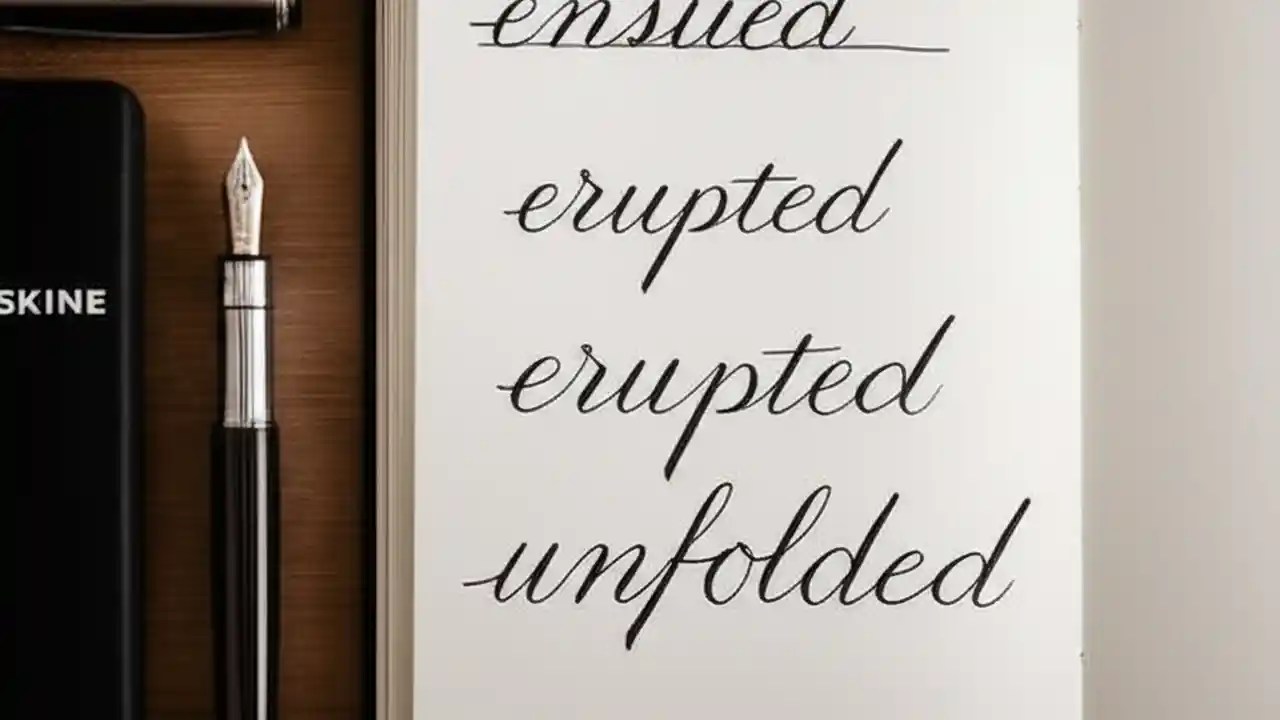 ensued
erupted
SKINE
erupted
unfolded